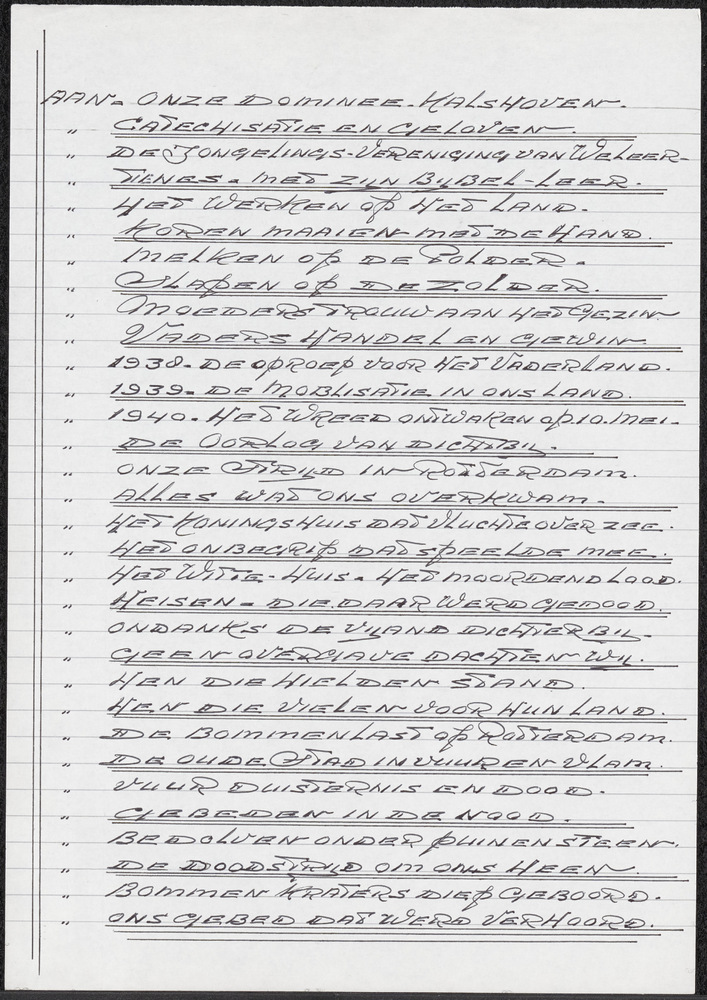 AAN. ONZE DOMINEE. KALSHOVEN.
" CATECHISATIE EN GELOVEN.
" DE JONGELINGS-VERENIGING VAN WELEER-
" TIENES. MET ZIJN BIJBEL-LEER.
" HET WERKEN OP HET LAND.
" KOREN MAAIEN MET DE HAND.
" MELKEN OP DE POLDER.
" SLAPEN OP DE ZOLDER.
" MOEDERS TROUW AAN HET GEZIN
" VADERS HANDEL EN GEWIN
" 1938. DE OPROEP VOOR HET VADERLAND.
" 1939. DE MOBLISATIE IN ONS LAND.
" 1940. HET WREED ONTWAKEN OP.10.MEI.
" DE OORLOG VAN DICHTBIJ.
" ONZE STRIJD IN ROTTERDAM.
" ALLES WAT ONS OVERKWAM.
" HET KONINGSHUIS DAT VLUCHTE OVER ZEE.
" HET ONBEGRIP DAT SPEELDE MEE.
" HET WITTE-HUIS. HET MOORDEND LOOD.
" HEISEN - DIE.DAAR WERD GEDOOD.
" ONDANKS DE VIJAND DICHTERBIJ-
" GEEN OVERGAVE DACHTEN WIJ.
" HEN DIE HIELDEN STAND.
" HEN DIE VIELEN VOOR HUN LAND.
" DE BOMMENLAST OP ROTTERDAM.
" DE OUDE STAD IN VUUR EN VLAM.
" VUUR DUISTERNIS EN DOOD.
" GEBEDEN IN DE NOOD.
" BEDOLVEN ONDER PUINENSTEEN.
" DE DOODSTRIJD OM ONS HEEN.
" BOMMEN KRATERS DIEP GEBOORD.
" ONS GEBED DAT WERD VERHOORD.